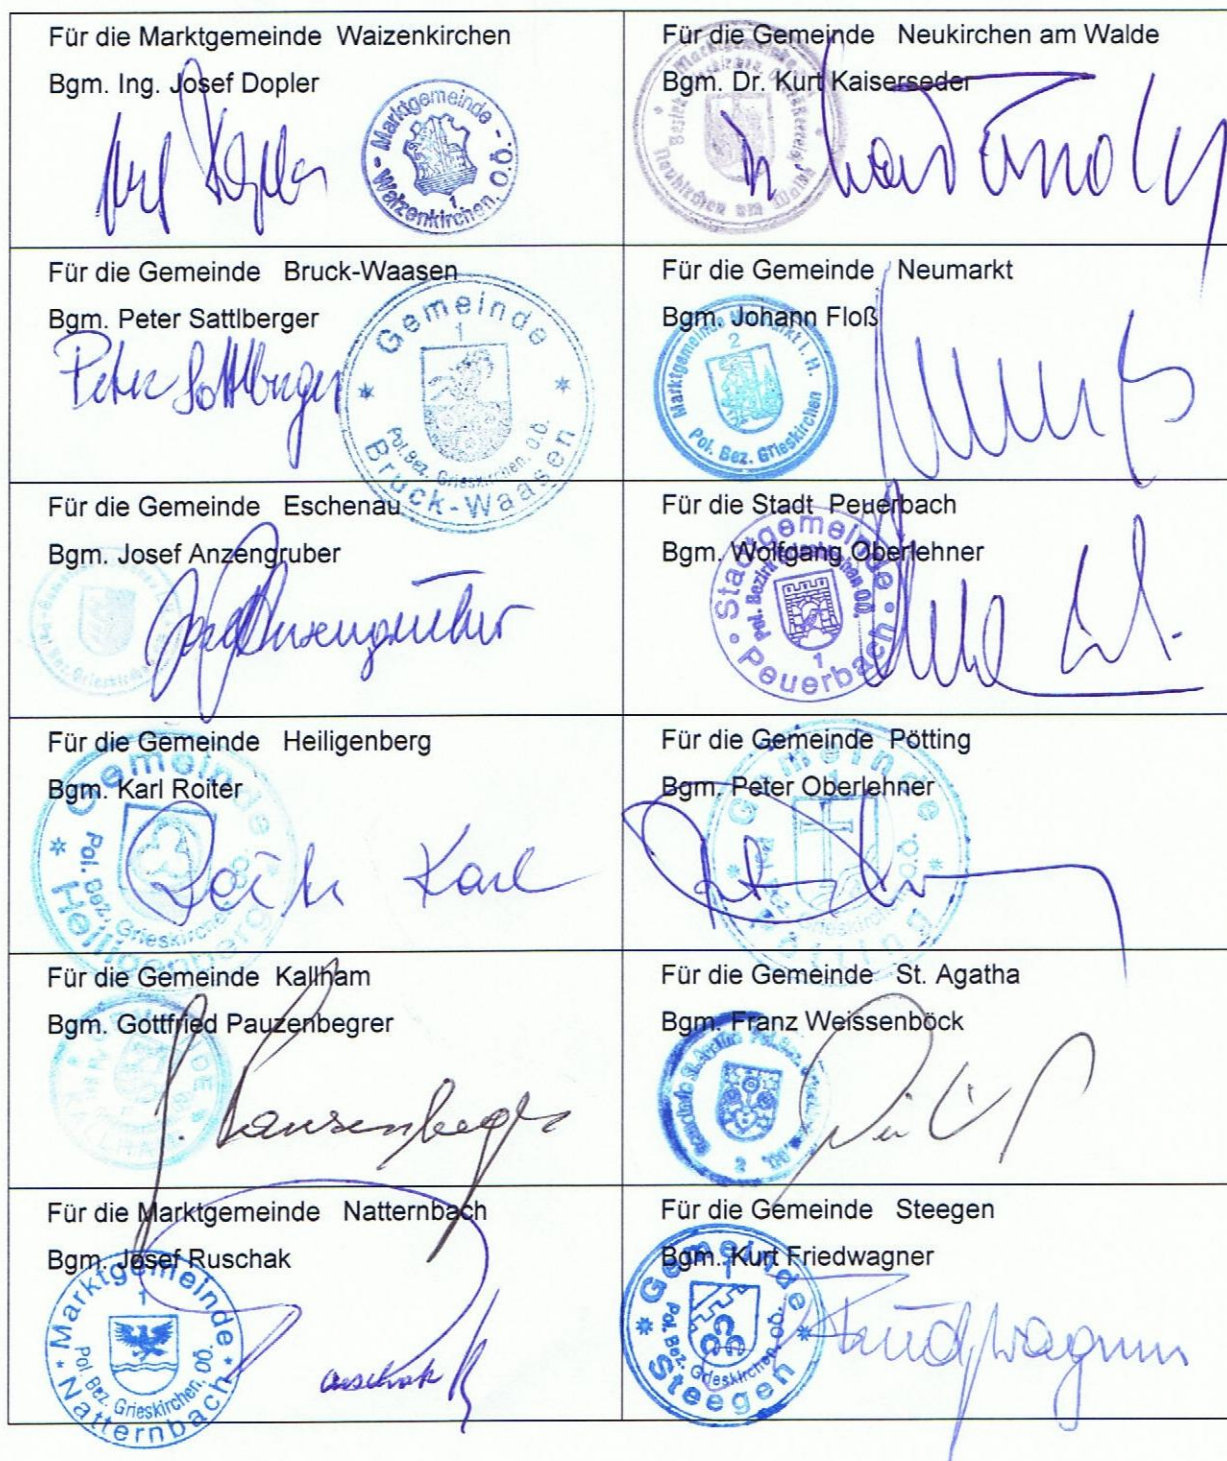 Für die Marktgemeinde Waizenkirchen
Bgm. Ing. Josef Dopler
Marktgemeinde - O.Ö.
Waizenkirchen,
1
Für die Gemeinde Neukirchen am Walde
Bgm. Dr. Kurt Kaiserseder
Marktgemeinde
Neukirchen am Walde
Für die Gemeinde Bruck-Waasen
Bgm. Peter Sattlberger
Peter Sattlberger
Gemeinde
1
Pol. Bez. Grieskirchen, O.Ö.
Bruck-Waasen
Für die Gemeinde Neumarkt
Bgm. Johann Floß
Marktgemeinde Neumarkt i. H.
2
Pol. Bez. Grieskirchen
Für die Gemeinde Eschenau
Bgm. Josef Anzengruber
Josef Anzengruber
Für die Stadt Peuerbach
Bgm. Wolfgang Oberlehner
Stadtgemeinde
Pol. Bezirk OÖ.
1
Peuerbach
Für die Gemeinde Heiligenberg
Bgm. Karl Roiter
Gemeinde
Pol. Bez. Grieskirchen
Heiligenberg
Roiter Karl
Für die Gemeinde Pötting
Bgm. Peter Oberlehner
Gemeinde
Pötting
Für die Gemeinde Kallham
Bgm. Gottfried Pauzenbegrer
GEMEINDE
KALLHAM
Für die Gemeinde St. Agatha
Bgm. Franz Weissenböck
Gemeinde St. Agatha Pol. Bez.
2
Für die Marktgemeinde Natternbach
Bgm. Josef Ruschak
Marktgemeinde
1
Pol. Bez. Grieskirchen, OÖ.
Natternbach
Ruschak
Für die Gemeinde Steegen
Bgm. Kurt Friedwagner
Gemeinde
1
Pol. Bez. Grieskirchen, OÖ.
Steegen
Friedwagner